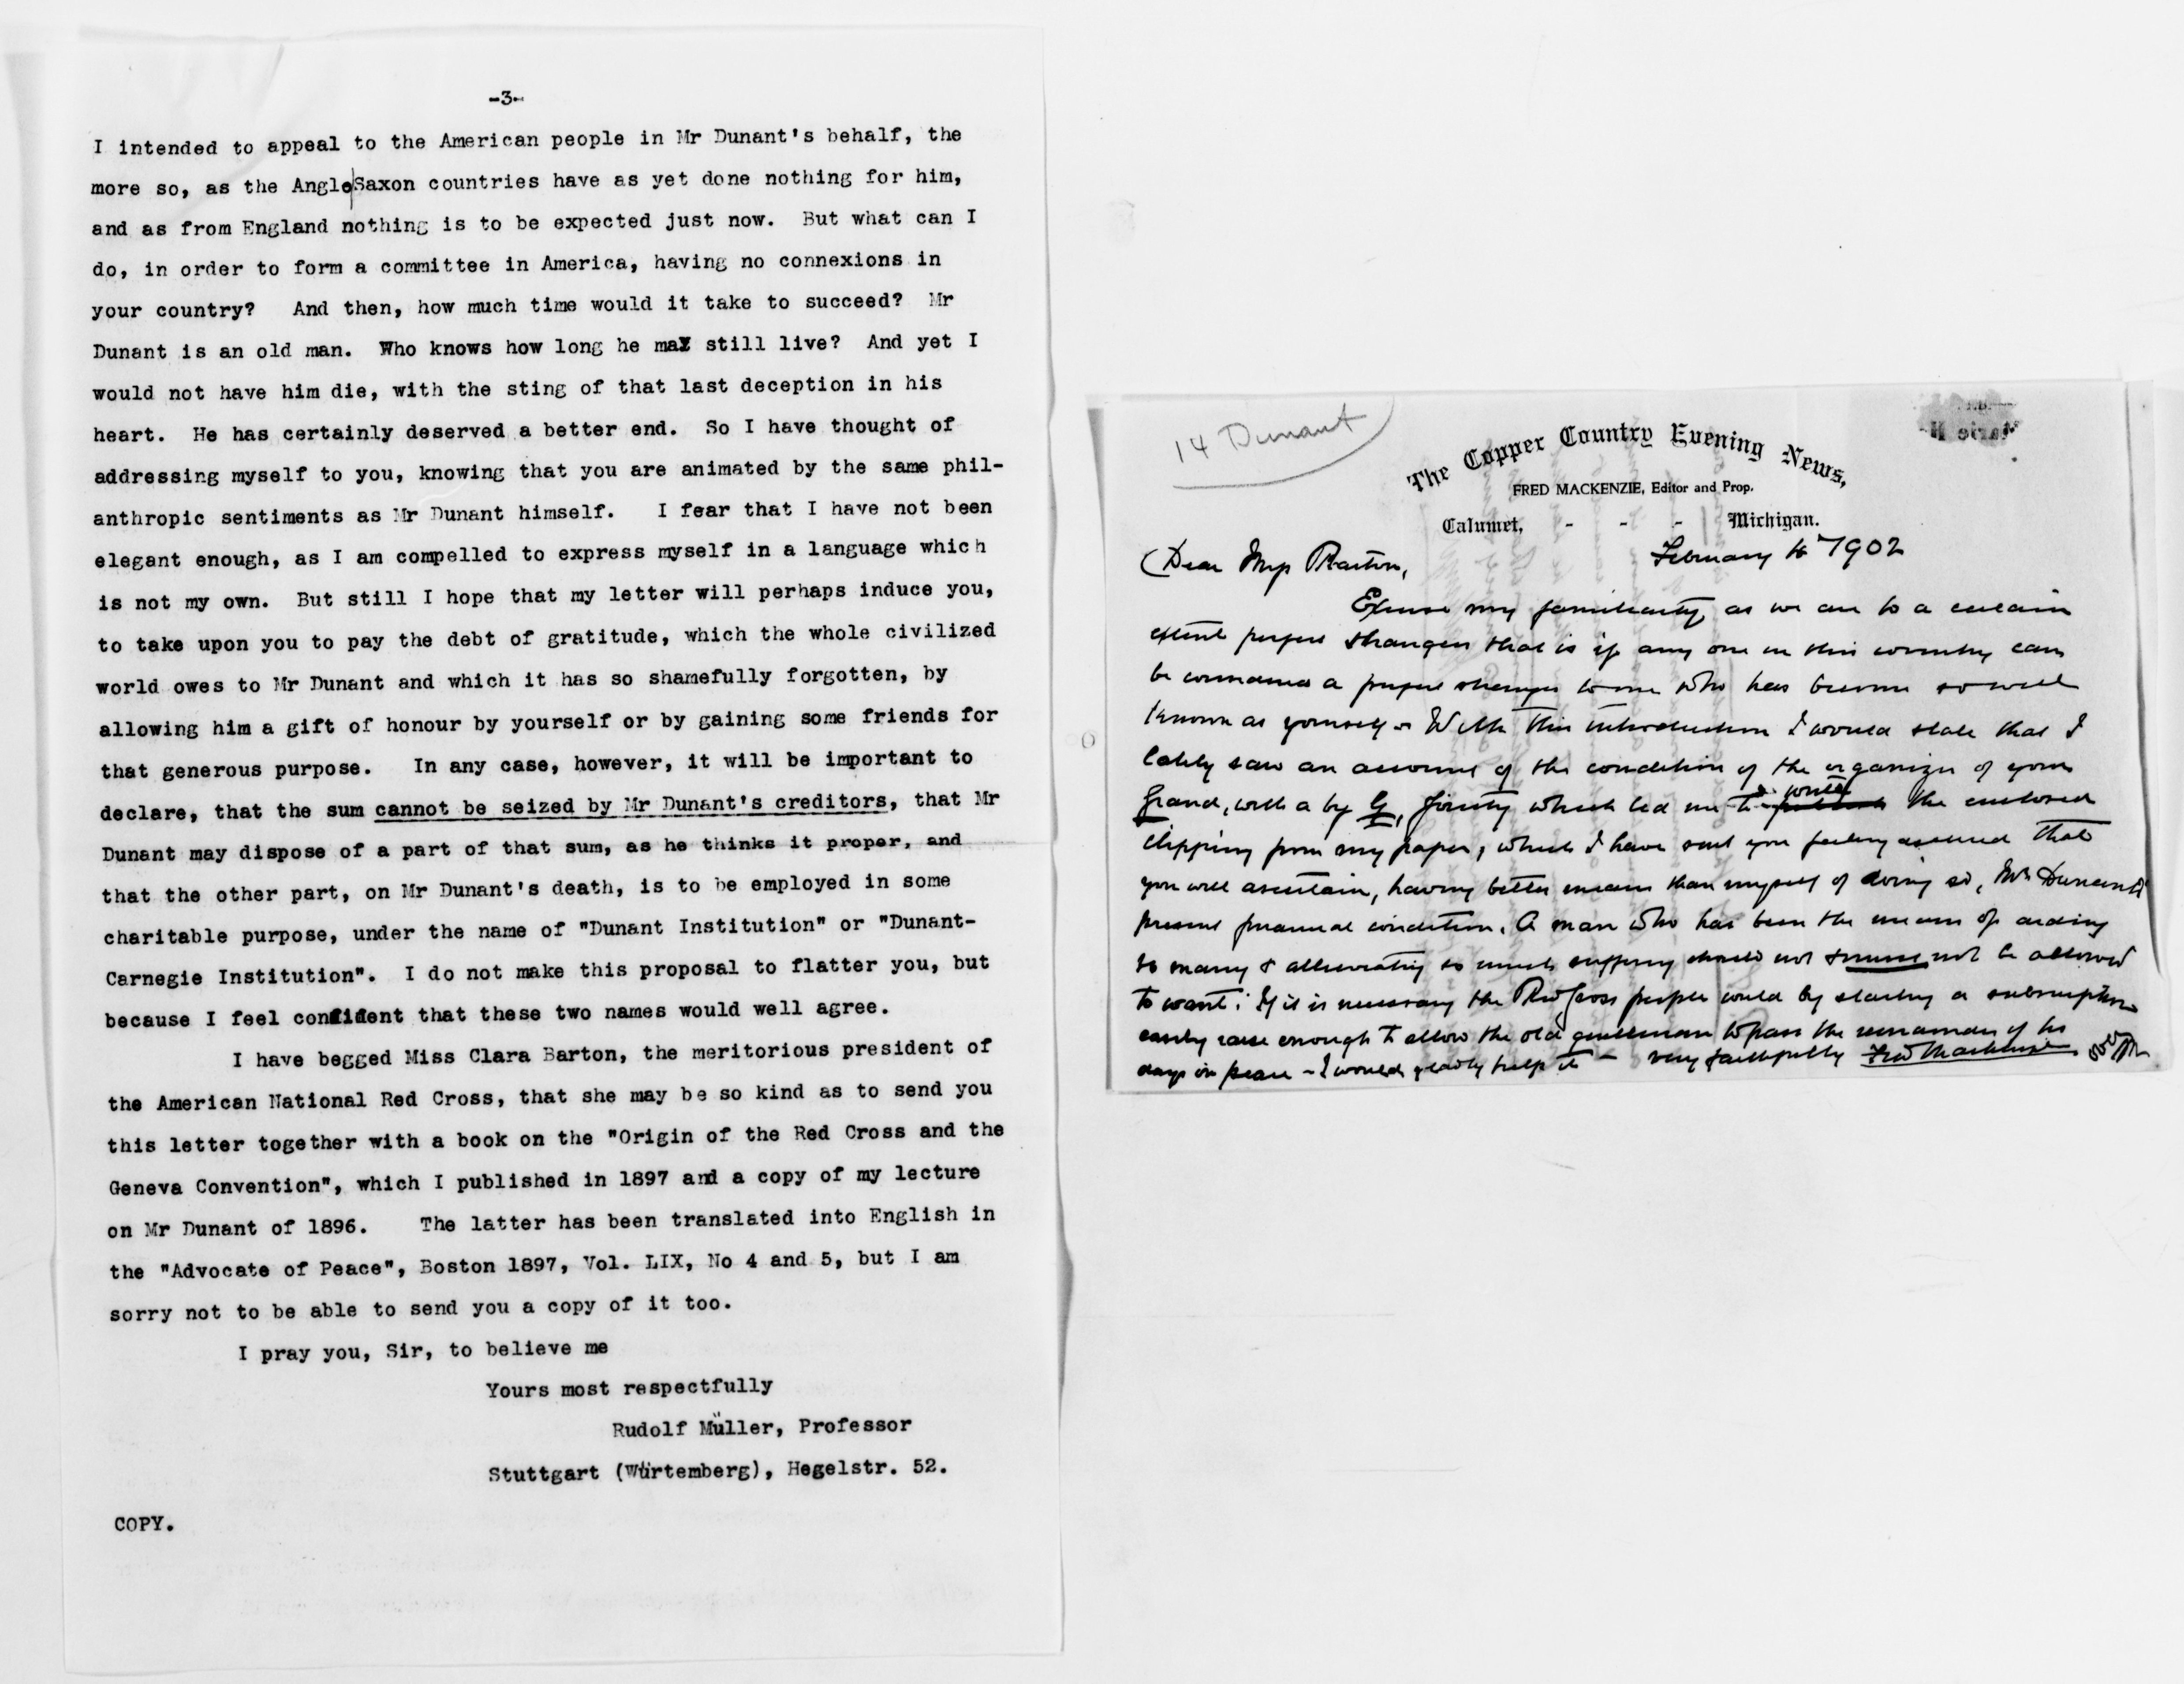 -3-
I intended to appeal to the American people in Mr Dunant's behalf, the
more so, as the Anglo|Saxon countries have as yet done nothing for him,
and as from England nothing is to be expected just now. But what can I
do, in order to form a committee in America, having no connexions in
your country? And then, how much time would it take to succeed? Mr
Dunant is an old man. Who knows how long he may still live? And yet I
would not have him die, with the sting of that last deception in his
heart. He has certainly deserved a better end. So I have thought of
addressing myself to you, knowing that you are animated by the same phil-
anthropic sentiments as Mr Dunant himself. I fear that I have not been
elegant enough, as I am compelled to express myself in a language which
is not my own. But still I hope that my letter will perhaps induce you,
to take upon you to pay the debt of gratitude, which the whole civilized
world owes to Mr Dunant and which it has so shamefully forgotten, by
allowing him a gift of honour by yourself or by gaining some friends for
that generous purpose. In any case, however, it will be important to
declare, that the sum cannot be seized by Mr Dunant's creditors, that Mr
Dunant may dispose of a part of that sum, as he thinks it proper, and
that the other part, on Mr Dunant's death, is to be employed in some
charitable purpose, under the name of "Dunant Institution" or "Dunant-
Carnegie Institution". I do not make this proposal to flatter you, but
because I feel confident that these two names would well agree.
I have begged Miss Clara Barton, the meritorious president of
the American National Red Cross, that she may be so kind as to send you
this letter together with a book on the "Origin of the Red Cross and the
Geneva Convention", which I published in 1897 and a copy of my lecture
on Mr Dunant of 1896. The latter has been translated into English in
the "Advocate of Peace", Boston 1897, Vol. LIX, No 4 and 5, but I am
sorry not to be able to send you a copy of it too.
I pray you, Sir, to believe me
Yours most respectfully
Rudolf Müller, Professor
Stuttgart (Würtemberg), Hegelstr. 52.
COPY.
14 Dunant
The Copper Country Evening News,
FRED MACKENZIE, Editor and Prop.
Calumet, - - - Michigan.
February 1902
Dear Miss Barton,
Excuse my familiarity, as we are to a certain
extent perfect strangers that is if any one in this country can
be considered a perfect stranger to one who has become so well
known as yourself - With this introduction I would state that I
lately saw an account of the condition of the organizer of your
Grand, with a big G, Society which led me to write the enclosed
clipping from my paper, which I have sent you feeling assured that
you will ascertain, having better means than myself of doing so, Mr Dunant's
present financial condition. A man who has been the means of aiding
so many & alleviating so much suffering should not & must not be allowed
to want. If it is necessary the Red Cross people could by starting a subscription
easily raise enough to allow the old gentleman to pass the remainder of his
days in peace - I would gladly help it - Very faithfully Fred Mackenzie